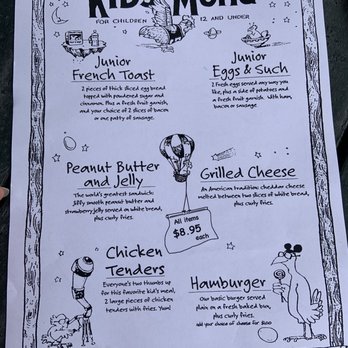 KIDS' MENU
FOR CHILDREN 12 AND UNDER
Junior
French Toast
2 pieces of thick sliced egg bread
topped with powdered sugar and
cinnamon. Plus a fresh fruit garnish,
and your choice of 2 slices of bacon
or one patty of sausage.
Junior
Eggs & Such
2 fresh eggs served any way you
like, plus a side of potatoes and
a fresh fruit garnish. with ham,
bacon or sausage.
Peanut Butter
and Jelly
The world's greatest sandwich:
Jiffy smooth peanut butter and
strawberry jelly served on white bread,
plus curly fries.
Grilled Cheese
An American tradition: cheddar cheese
melted between two slices of white bread,
plus curly fries.
All items
$8.95
each
Chicken
Tenders
Everyone's two thumbs up
for this favorite kid's meal,
2 large pieces of chicken
tenders with fries. Yum!
Hamburger
Our basic burger served
plain on a burger bun,
plus curly fries.
add your choice of cheese for